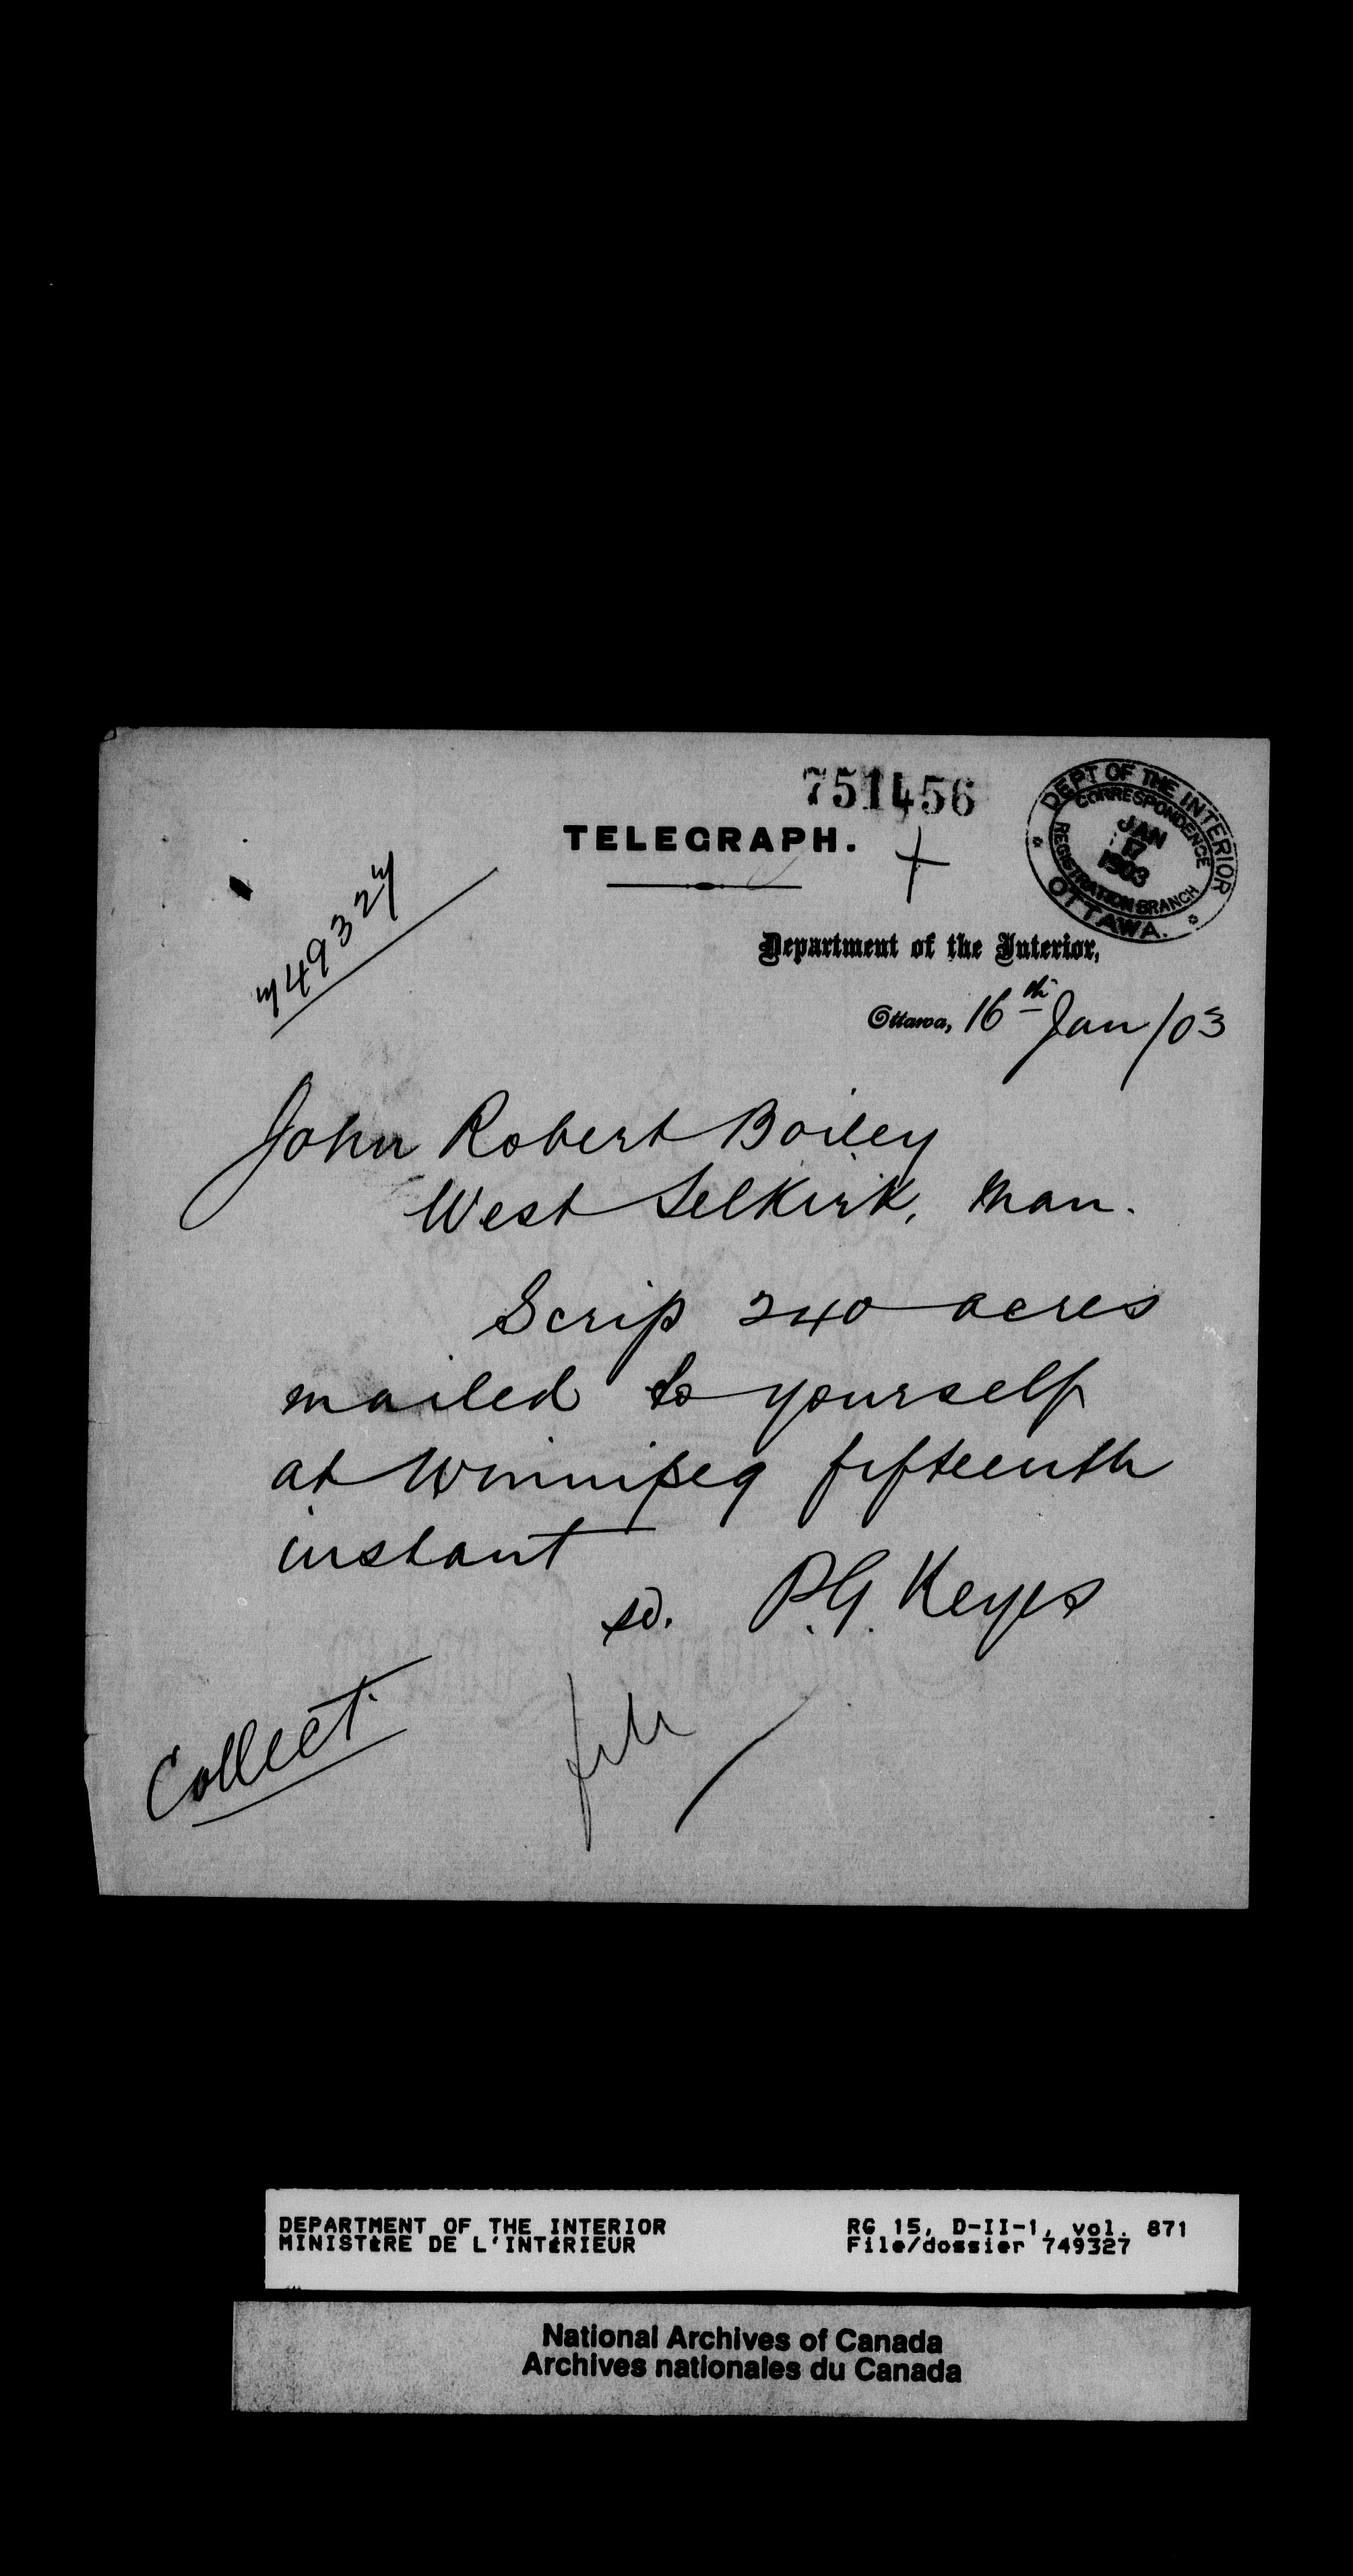 751456
TELEGRAPH.
DEPT OF THE INTERIOR
CORRESPONDENCE
JAN
17
1903
REGISTRATION BRANCH
OTTAWA.
749327
Department of the Interior,
Ottawa, 16th Jan/03
John Robert Boiley
West Selkirk, Man.
Scrip 240 acres
mailed to yourself
at Winnipeg fifteenth
instant
sd. P.G. Keyes
Collect.
file
DEPARTMENT OF THE INTERIOR RG 15, D-II-1, vol. 871
MINISTÈRE DE L'INTÉRIEUR File/dossier 749327
National Archives of Canada
Archives nationales du Canada